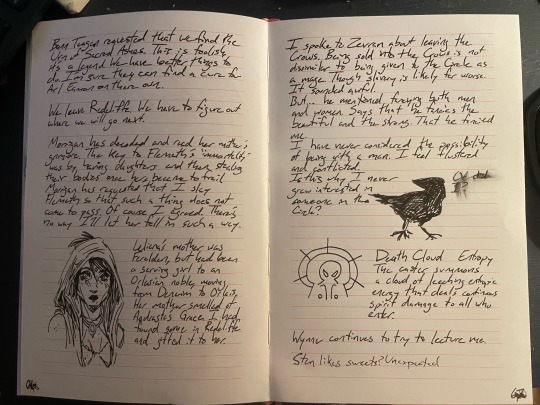 Bann Teagan requested that we find the
Urn of Sacred Ashes. This is foolish,
its a legend. We have better things to
do. I'm sure they can find a cure for
Arl Eamon on their own.
We leave Redcliffe. We have to figure out
where we will go next.
Morrigan has decoded and read her mother's
grimoire. The key to Flemeth's "immortality"
was by having daughters and then stealing
their bodies once they became to frail.
Morrigan has requested that I slay
Flemeth so that such a thing does not
come to pass. Of course I agreed. There's
no way I'll let her die in such a way.
Leliana's mother was
Fereldan, but had been
a serving girl to an
Orlesian noble, moving
from Denerim to Orlais,
her mother smelled of
Andraste's Grace. I had
found some in Redcliffe
and gifted it to her.
I spoke to Zevran about leaving the
Crows. Being sold into the Crows is not
dissimilar to being given to the Circle as
a mage. Though slavery is likely far worse.
It sounded awful.
But... he mentioned fancying both men
and women. Says that he fancies the
beautiful and the strong. That he fancied
me.
I have never considered the possibility
of being with a man. I feel flustered
and conflicted.
Is this why I never
grew interested in
someone in the
Circle?
Death Cloud Entropy
The caster summons
a cloud of leeching entropic
energy that deals continuous
spirit damage to all who
enter.
Wynne continues to try to lecture me.
Sten likes sweets? Unexpected